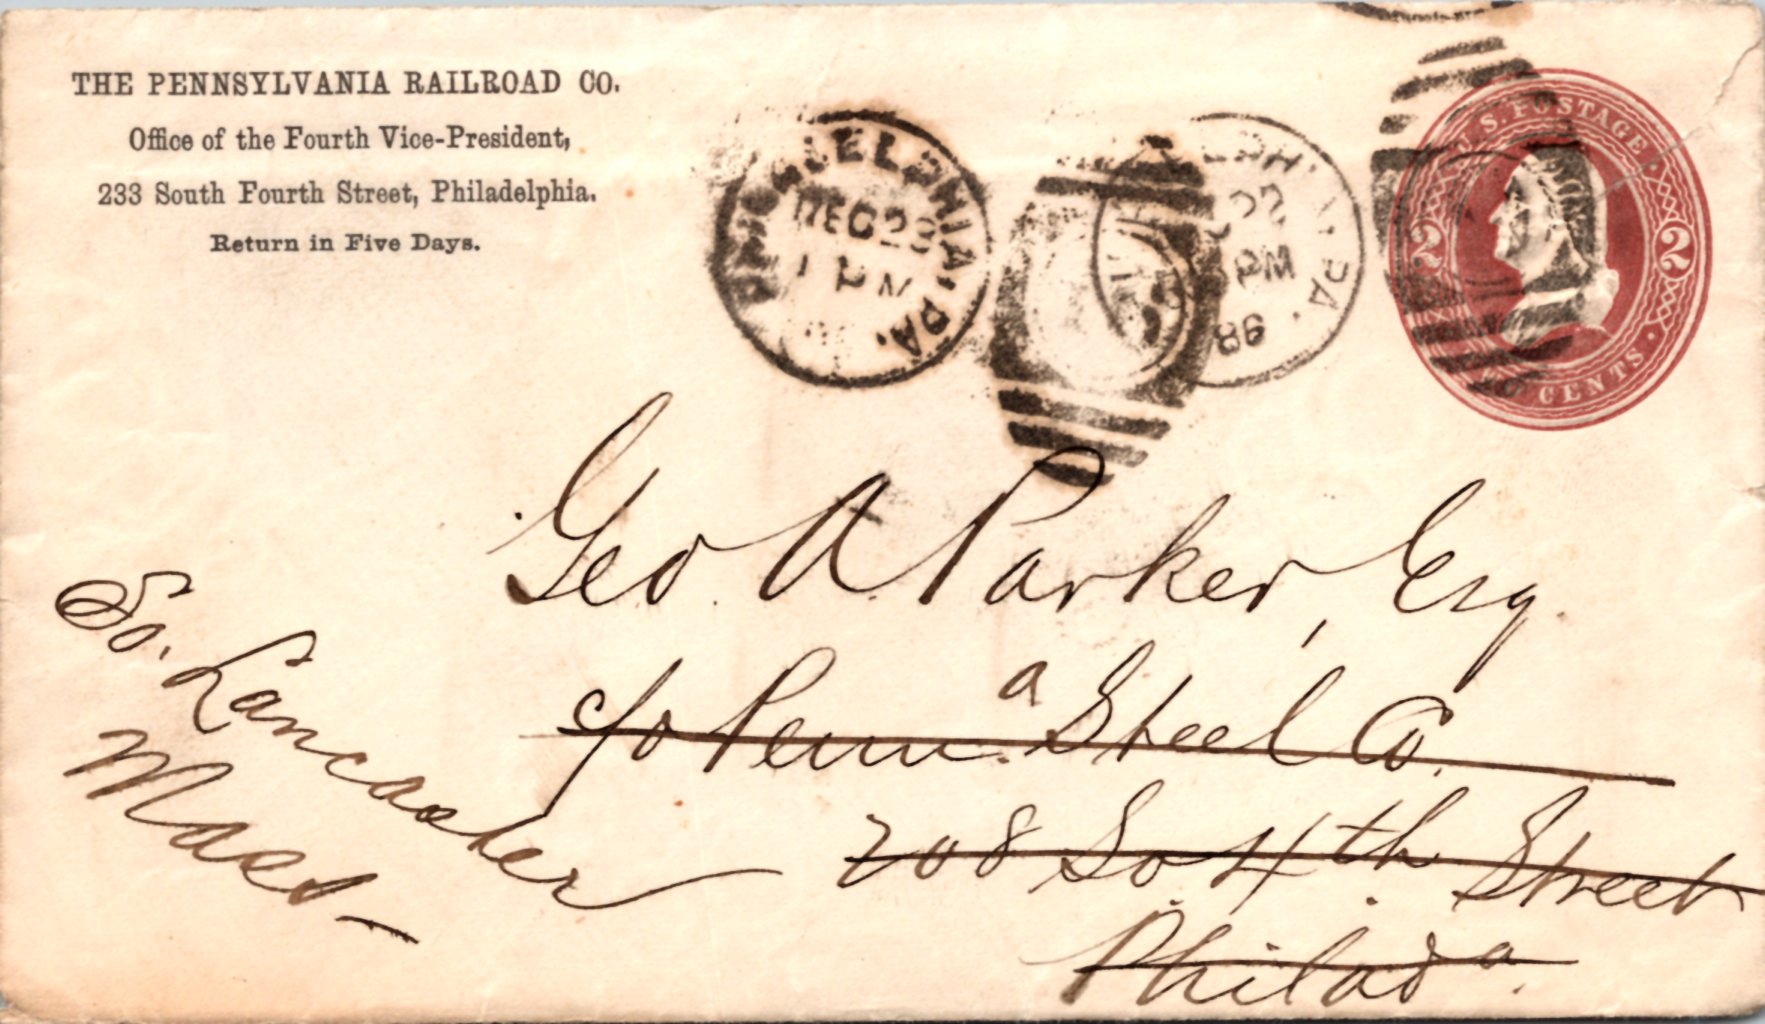 THE PENNSYLVANIA RAILROAD CO.
Office of the Fourth Vice-President,
233 South Fourth Street, Philadelphia.
Return in Five Days.
PHILADELPHIA, PA.
DEC 23
1 PM
22
PM
86
PA.
U.S. POSTAGE
2 2
CENTS
Geo. A. Parker, Esq.
c/o Penna. Steel Co.
208 So. 4th Street
Philada.
So. Lancaster
Mass